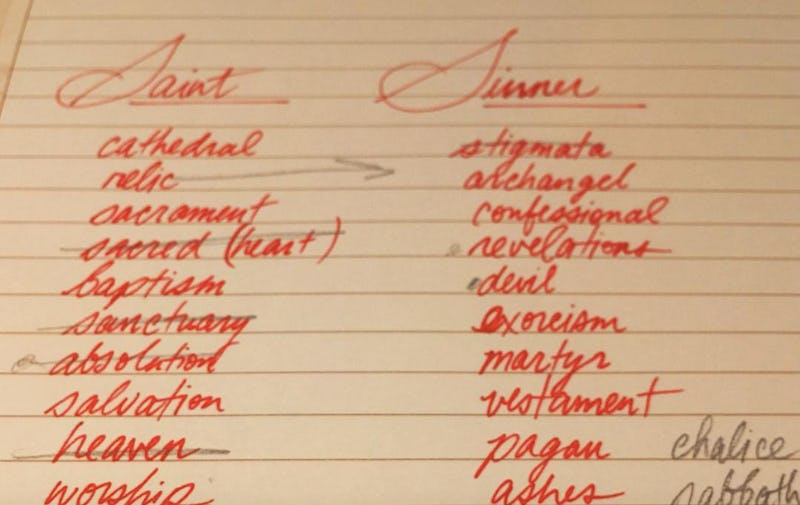 Saint
cathedral
relic
sacrament
sacred (heart)
baptism
sanctuary
absolution
salvation
heaven
worship
Sinner
stigmata
archangel
confessional
revelations
devil
exorcism
martyr
vestament
pagan
ashes
chalice
sabboth